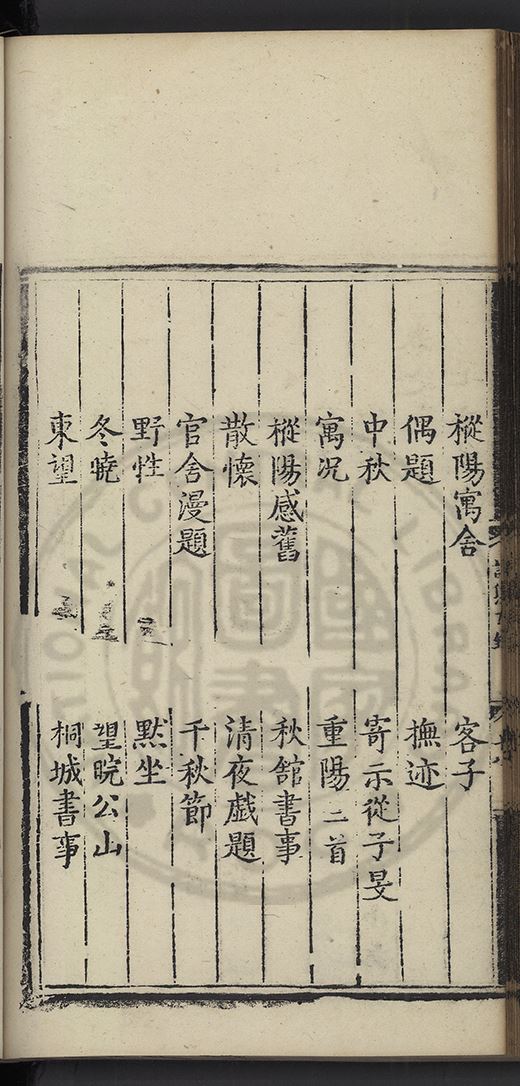 樅陽寓舍　客子
偶題　撫迹
中秋　寄示從子旻
寓况　重陽二首
樅陽感舊　秋館書事
散懷　清夜戯題
官舍漫題　千秋節
野性　默坐
冬曉　望皖公山
東望　桐城書事